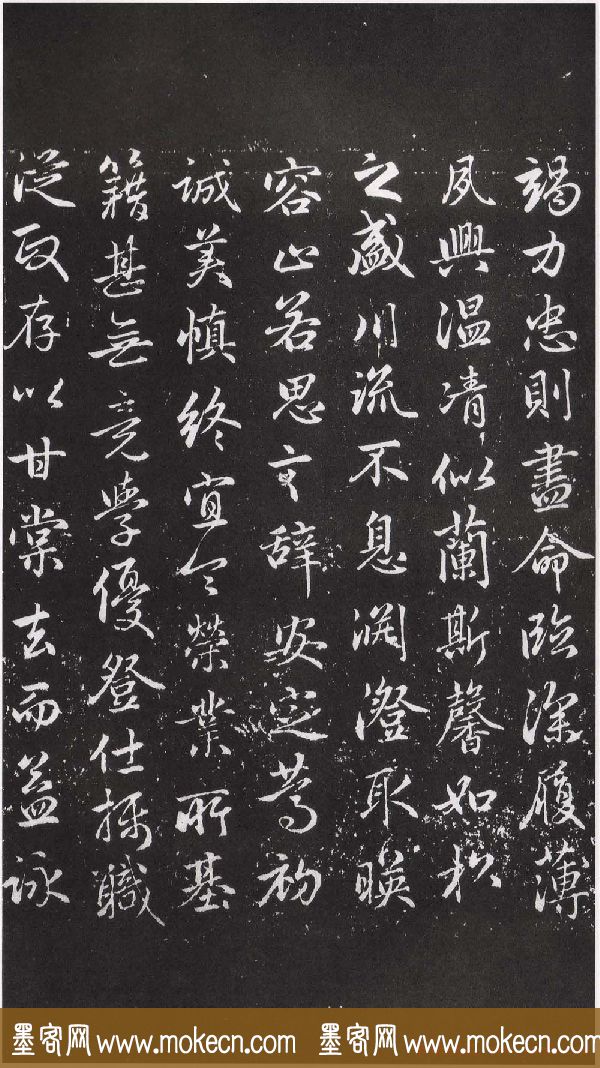 竭力忠則盡命臨深履薄
夙興溫凊似蘭斯馨如松
之盛川流不息淵澄取暎
容止若思言辞安定篤初
誠美慎終宜令榮業所基
籍甚無竟學優登仕攝職
從政存以甘棠去而益詠
墨客网 www.mokecn.com 墨客网 www.mokecn.com